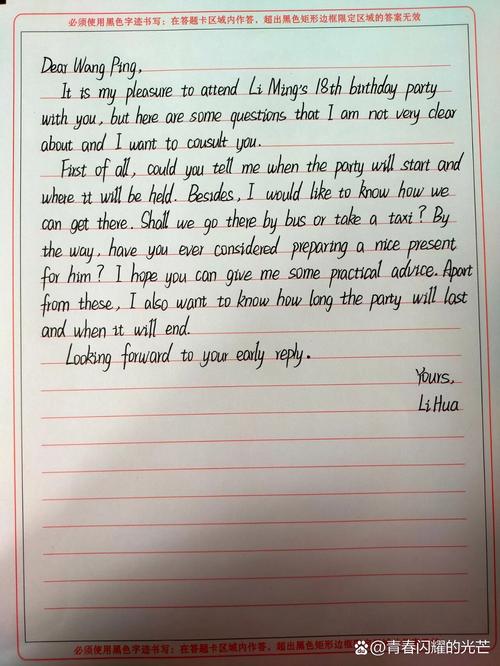 必须使用黑色字迹书写：在答题卡区域内作答，超出黑色矩形边框限定区域的答案无效
Dear Wang Ping,
It is my pleasure to attend Li Ming's 18th birthday party
with you, but here are some questions that I am not very clear
about and I want to cousult you.
First of all, could you tell me when the party will start and
where it will be held. Besides, I would like to know how we
can get there. Shall we go there by bus or take a taxi? By
the way, have you ever considered preparing a nice present
for him? I hope you can give me some practical advice. Apart
from these, I also want to know how long the party will last
and when it will end.
Looking forward to your early reply.
Yours,
Li Hua
必须使用黑色字迹书写：在答题卡区域内作答，超出黑色矩形边框限定区域的答案无效
@青春闪耀的光芒